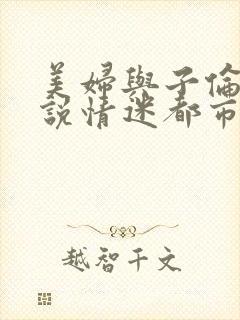 美婦與子倫
說情迷都市
越智千文